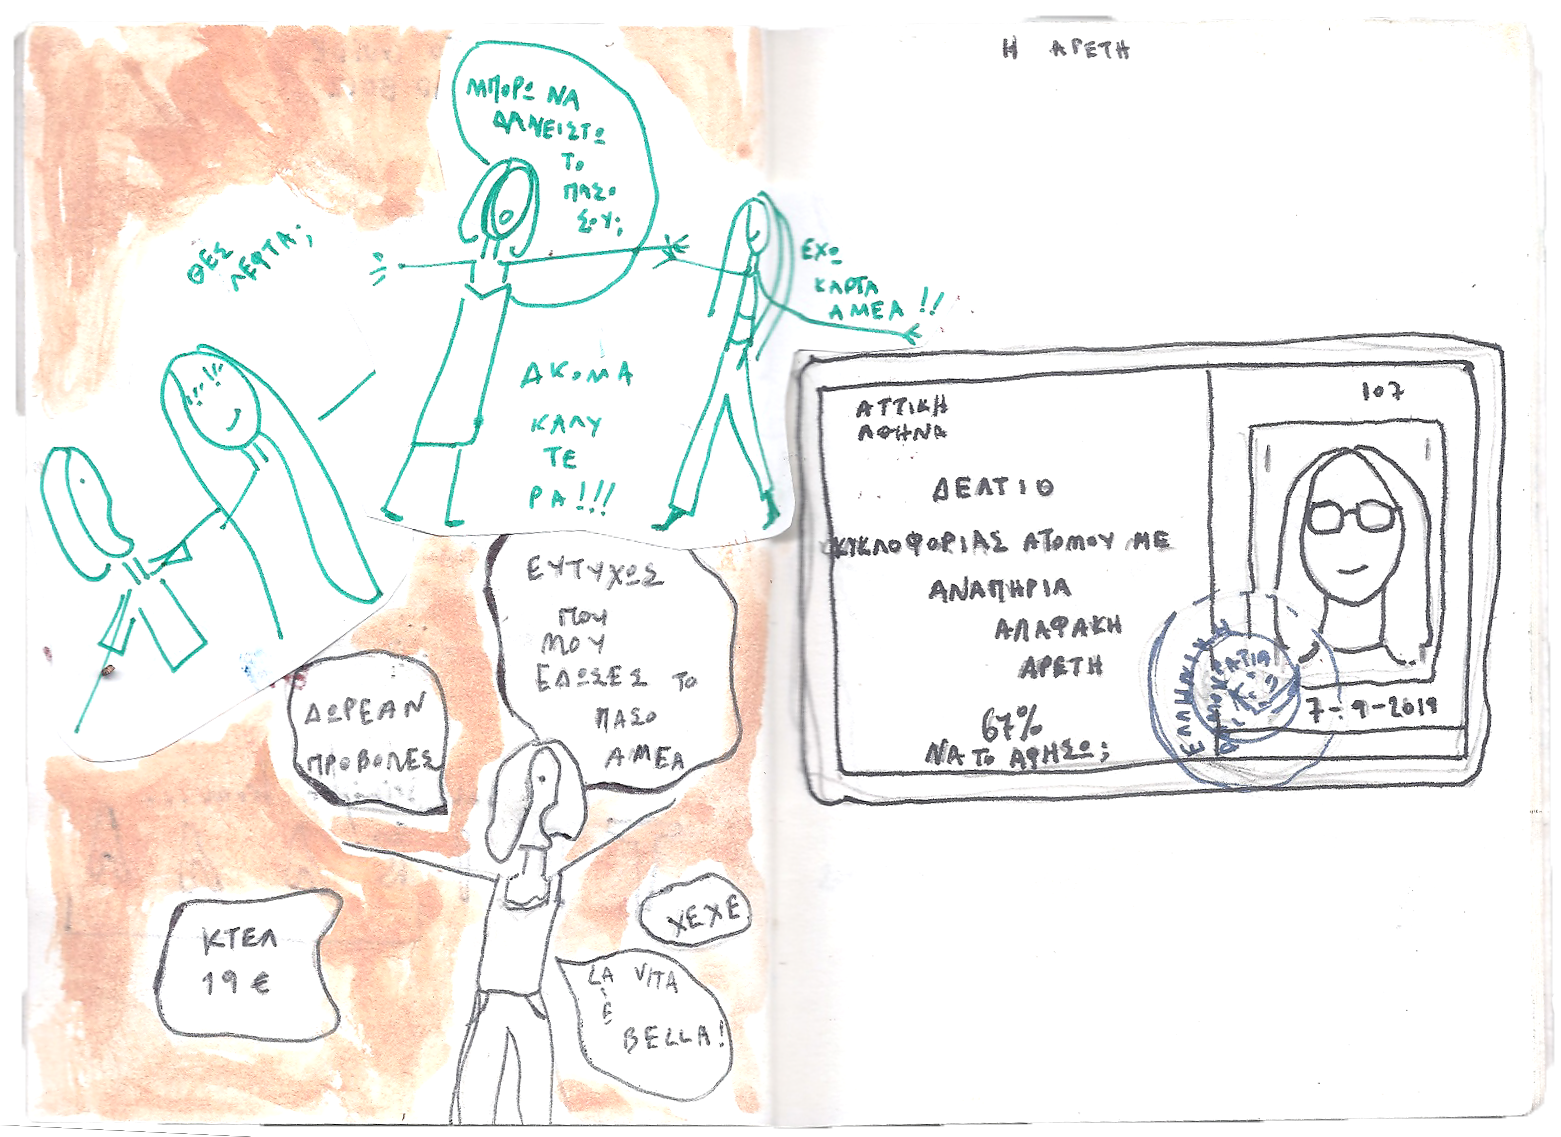 Η ΑΡΕΤΗ
ΜΠΟΡΩ ΝΑ
ΔΑΝΕΙΣΤΩ
ΤΟ
ΠΑΣΟ
ΣΟΥ;
ΘΕΣ
ΛΕΦΤΑ;
ΕΧΩ
ΚΑΡΤΑ
ΑΜΕΑ!!
ΑΚΟΜΑ
ΚΑΛΥ
ΤΕ
ΡΑ!!!
ΕΥΤΥΧΩΣ
ΠΟΥ
ΜΟΥ
ΕΔΩΣΕΣ ΤΟ
ΠΑΣΟ
ΑΜΕΑ
ΔΩΡΕΑΝ
ΠΡΟΒΟΛΕΣ
ΚΤΕΛ
19 €
ΧΕΧΕ
LA VITA
È
BELLA!
ΑΤΤΙΚΗ
ΑΘΗΝΑ
107
ΔΕΛΤΙΟ
ΚΥΚΛΟΦΟΡΙΑΣ ΑΤΟΜΟΥ ΜΕ
ΑΝΑΠΗΡΙΑ
ΑΛΑΦΑΚΗ
ΑΡΕΤΗ
67%
ΝΑ ΤΟ ΑΦΗΣΩ;
7-9-2019